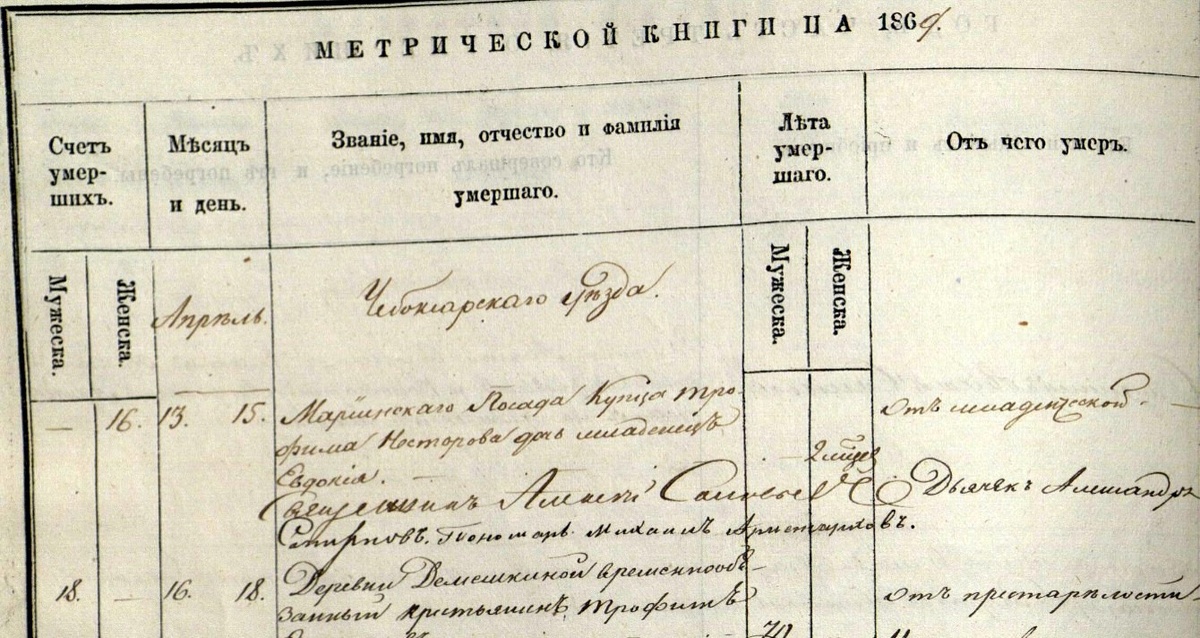 МЕТРИЧЕСКОЙ КНИГИ НА 1869.
Счетъ умер-шихъ.
Мѣсяцъ и день.
Званіе, имя, отчество и фамилія умершаго.
Лѣта умер-шаго.
Отъ чего умеръ.
Мужеска.
Женска.
Мужеска.
Женска.
Апрѣль.
Чебоксарскаго уѣзда.
— 16. 13. 15. Маріинскаго Посада Купца Тро-
фима Несторова дочь младенецъ
Евдокія. —
— 2 мѣсяц
отъ младенческой. —
Священникъ Алексій Дьячекъ Александръ
Смирновъ. Пономарь Михаилъ Аристарховъ.
18. — 16. 18. Деревни Демешкиной временнооб-
занный крестьянинъ Трофимъ
70
отъ престарѣлости